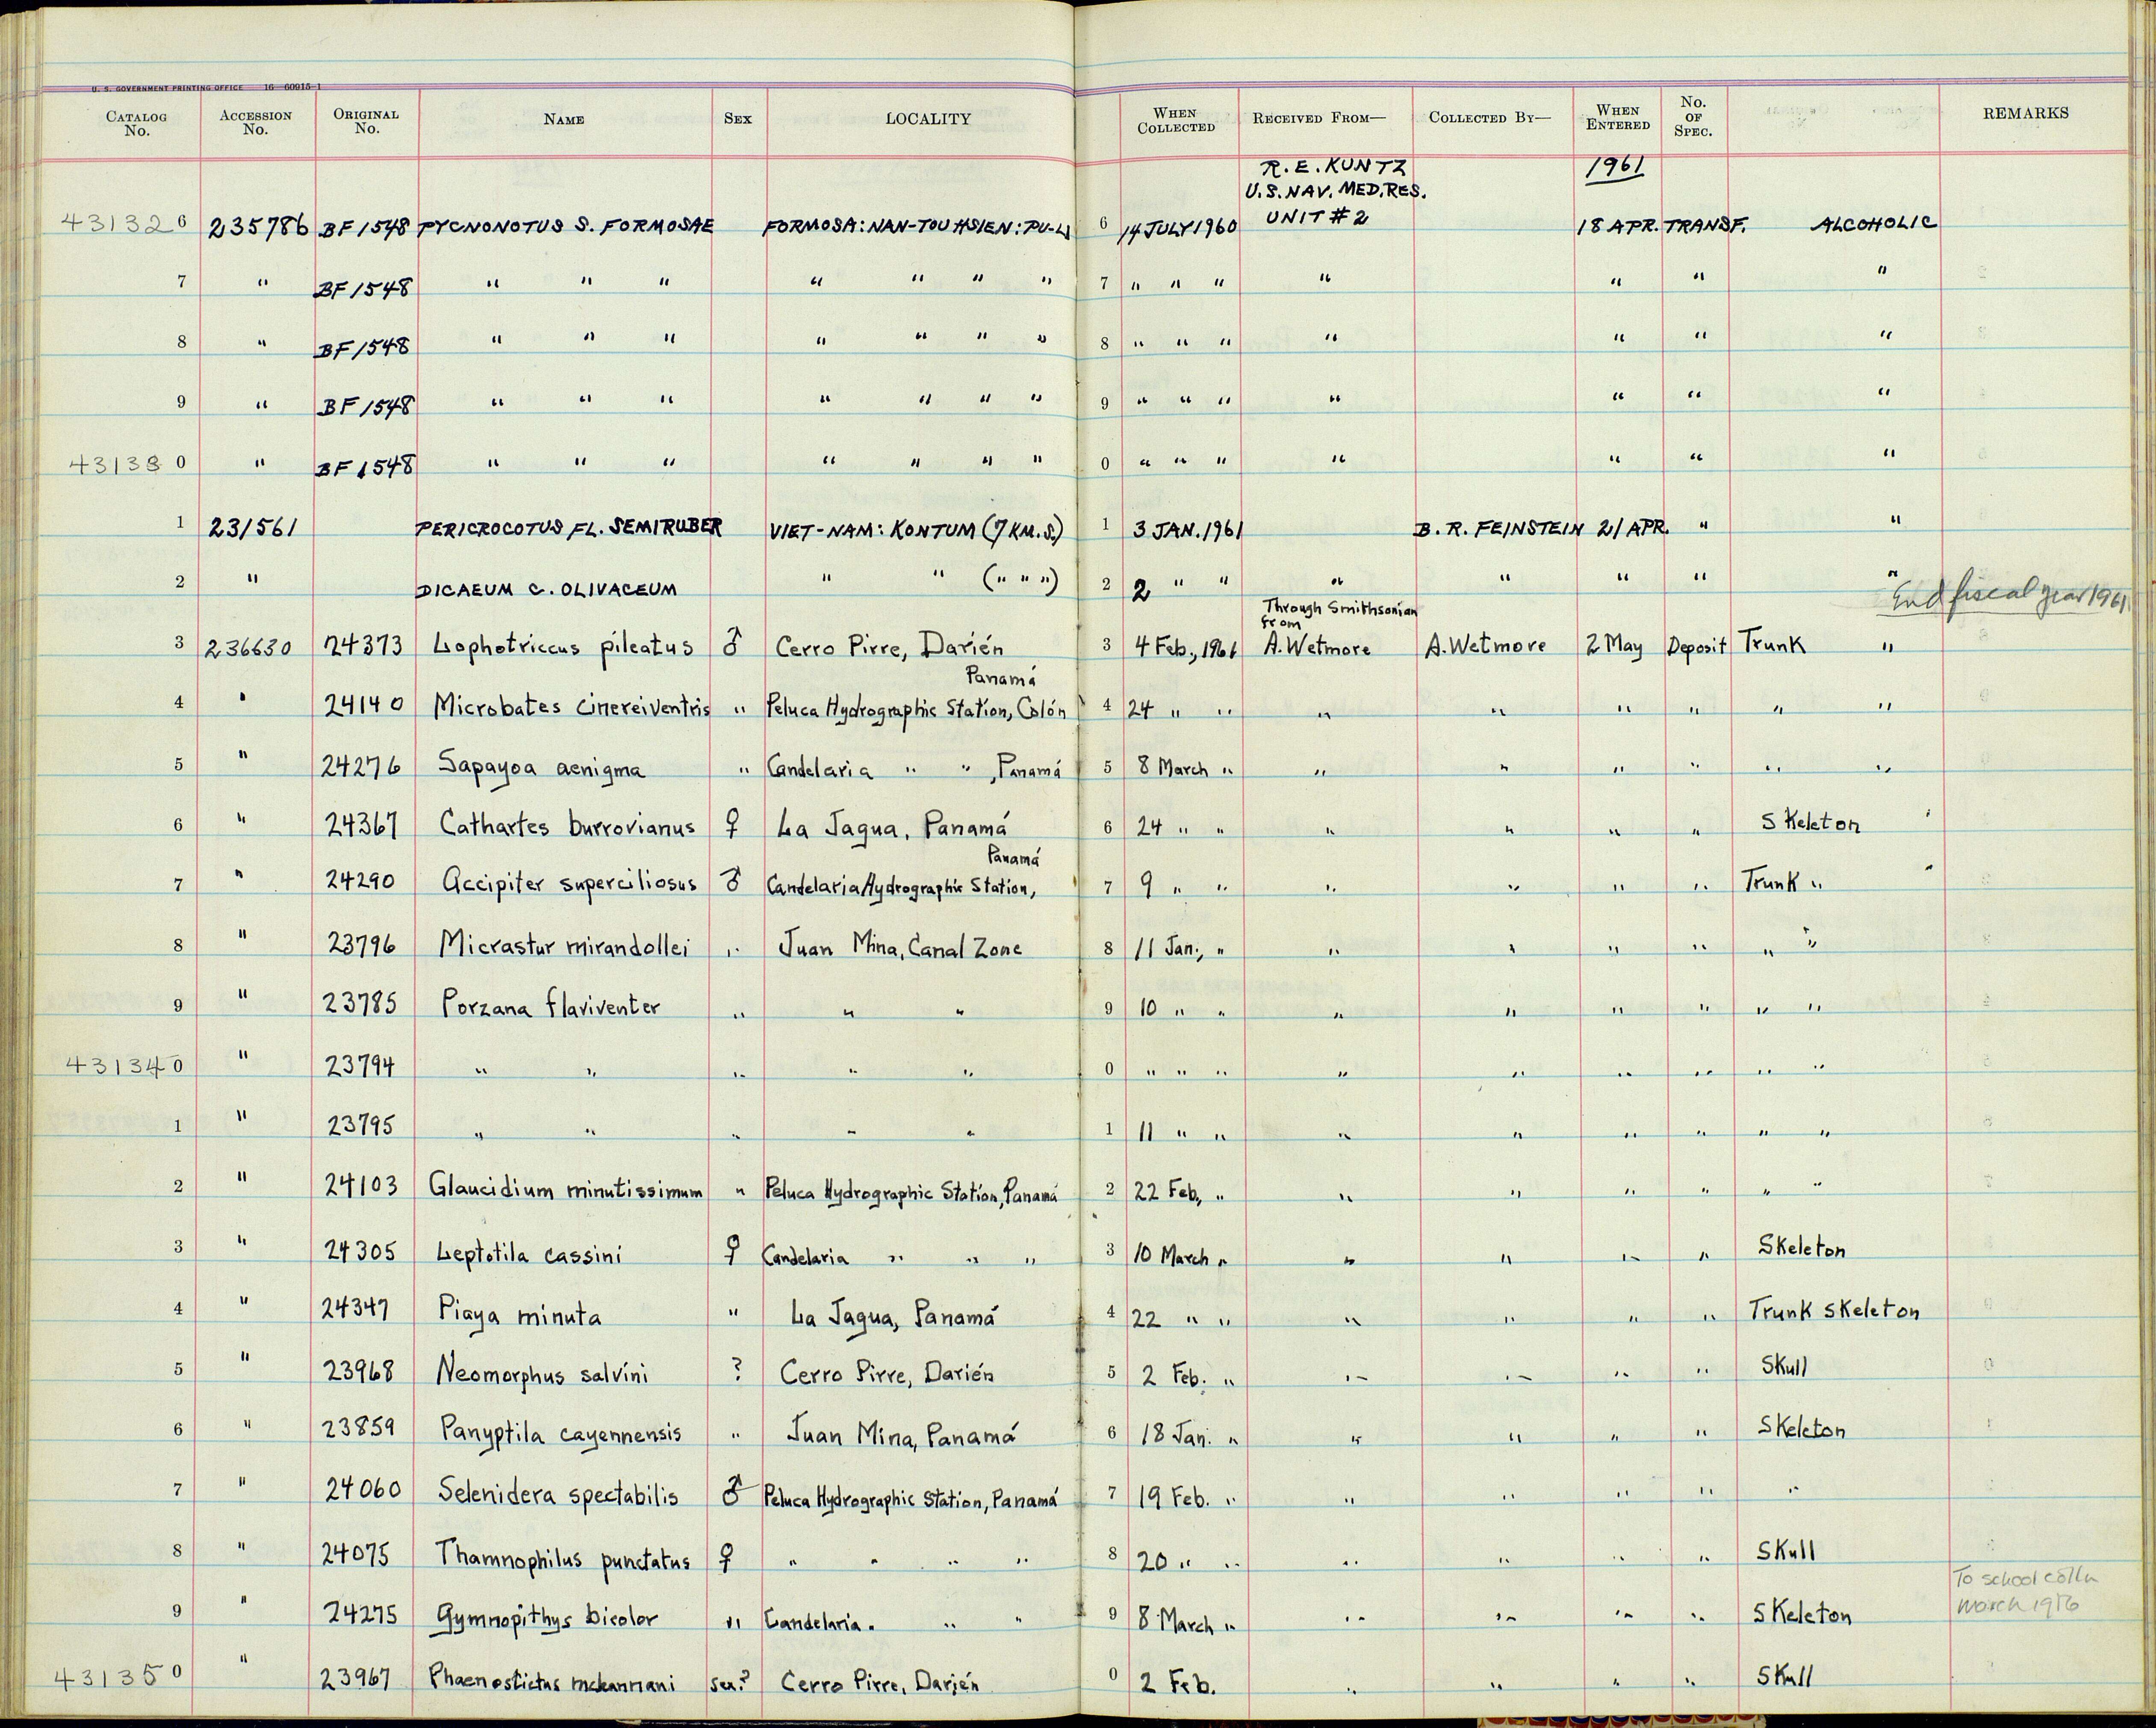 U. S. GOVERNMENT PRINTING OFFICE 16—60915-1
CATALOG No. ACCESSION No. ORIGINAL No. NAME SEX LOCALITY WHEN COLLECTED RECEIVED FROM— COLLECTED BY— WHEN ENTERED No. OF SPEC. REMARKS
R. E. KUNTZ 1961
U.S. NAV. MED. RES.
431326 235786 BF 1548 PYCNONOTUS S. FORMOSAE FORMOSA: NAN-TOU HSIEN: PU-LI 6 14 JULY 1960 UNIT # 2 18 APR. TRANSF. ALCOHOLIC
7 " BF 1548 " " " " " " " 7 " " " " " " "
8 " BF 1548 " " " " " " " 8 " " " " " " "
9 " BF 1548 " " " " " " " 9 " " " " " " "
431330 " BF 1548 " " " " " " " 0 " " " " " " "
1 231561 PERICROCOTUS FL. SEMIRUBER VIET-NAM: KONTUM (7 KM. S.) 1 3 JAN. 1961 B. R. FEINSTEIN 21 APR. " "
2 " DICAEUM C. OLIVACEUM " " (" " ") 2 2 " " " " " " "
End fiscal year 1961
Through Smithsonian
from
3 236630 24373 Lophotriccus pileatus ♂ Cerro Pirre, Darién 3 4 Feb., 1961 A. Wetmore A. Wetmore 2 May Deposit Trunk "
Panamá
4 " 24140 Microbates cinereiventris " Peluca Hydrographic Station, Colón 4 24 " " " " " " " "
5 " 24276 Sapayoa aenigma " Candelaria " " , Panamá 5 8 March " " " " " " "
6 " 24367 Cathartes burrovianus ♀ La Jagua, Panamá 6 24 " " " " " " Skeleton
Panamá
7 " 24290 Accipiter superciliosus ♂ Candelaria Hydrographic Station, 7 9 " " " " " " Trunk "
8 " 23796 Micrastur mirandollei " Juan Mina, Canal Zone 8 11 Jan., " " " " " " "
9 " 23785 Porzana flaviventer " " " 9 10 " " " " " " " "
431340 " 23794 " " " " " 0 " " " " " " " " "
1 " 23795 " " " " " 1 11 " " " " " " " "
2 " 24103 Glaucidium minutissimum " Peluca Hydrographic Station, Panamá 2 22 Feb., " " " " " " "
3 " 24305 Leptotila cassini ♀ Candelaria " " " 3 10 March " " " " " Skeleton
4 " 24347 Piaya minuta " La Jagua, Panamá 4 22 " " " " " " Trunk Skeleton
5 " 23968 Neomorphus salvini ? Cerro Pirre, Darién 5 2 Feb. " " " " " Skull
6 " 23859 Panyptila cayennensis " Juan Mina, Panamá 6 18 Jan. " " " " " Skeleton
7 " 24060 Selenidera spectabilis ♂ Peluca Hydrographic Station, Panamá 7 19 Feb. " " " " " "
8 " 24075 Thamnophilus punctatus ♀ " " " " 8 20 " " " " " " Skull
To school colln
9 " 24275 Gymnopithys bicolor " Candelaria " " " 9 8 March " " " " " Skeleton March
431350 " 23967 Phaenostictus mcleannani sex? Cerro Pirre, Darién 0 2 Feb. " " " " Skull